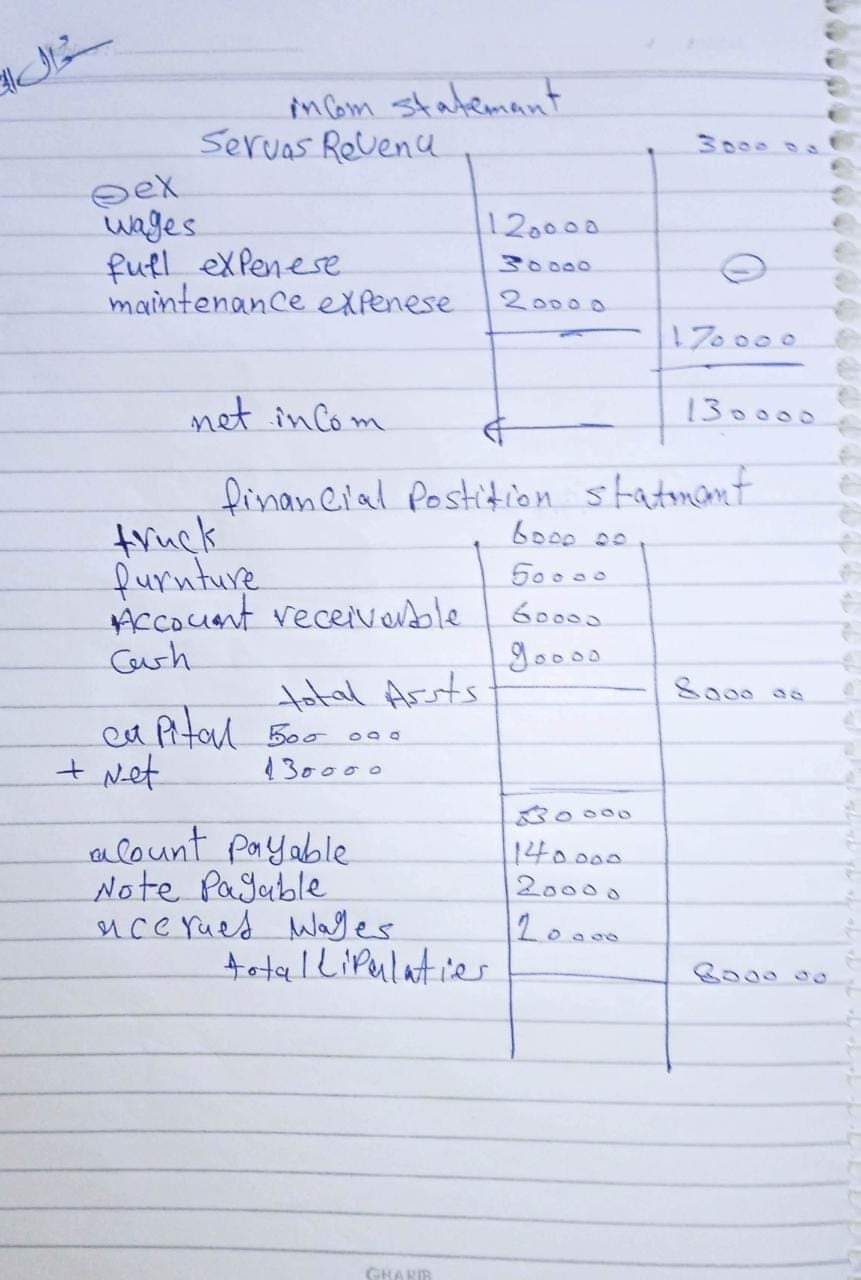 سؤال
incom statemant
Servas Revenu 3000 00
⊖ ex
wages 120000
full expenese 30000 ⊖
maintenance expenese 20000
170000
net incom 130000
financial Postition statmant
truck 6000 00
furnture 50000
Account receivable 60000
Cash 90000
total Assts 8000 00
capital 500 000
+ Net 130000
630000
acount Payable 140000
Note Payable 20000
accrued Wages 10000
total LiPulaties 8000 00
GHARIB